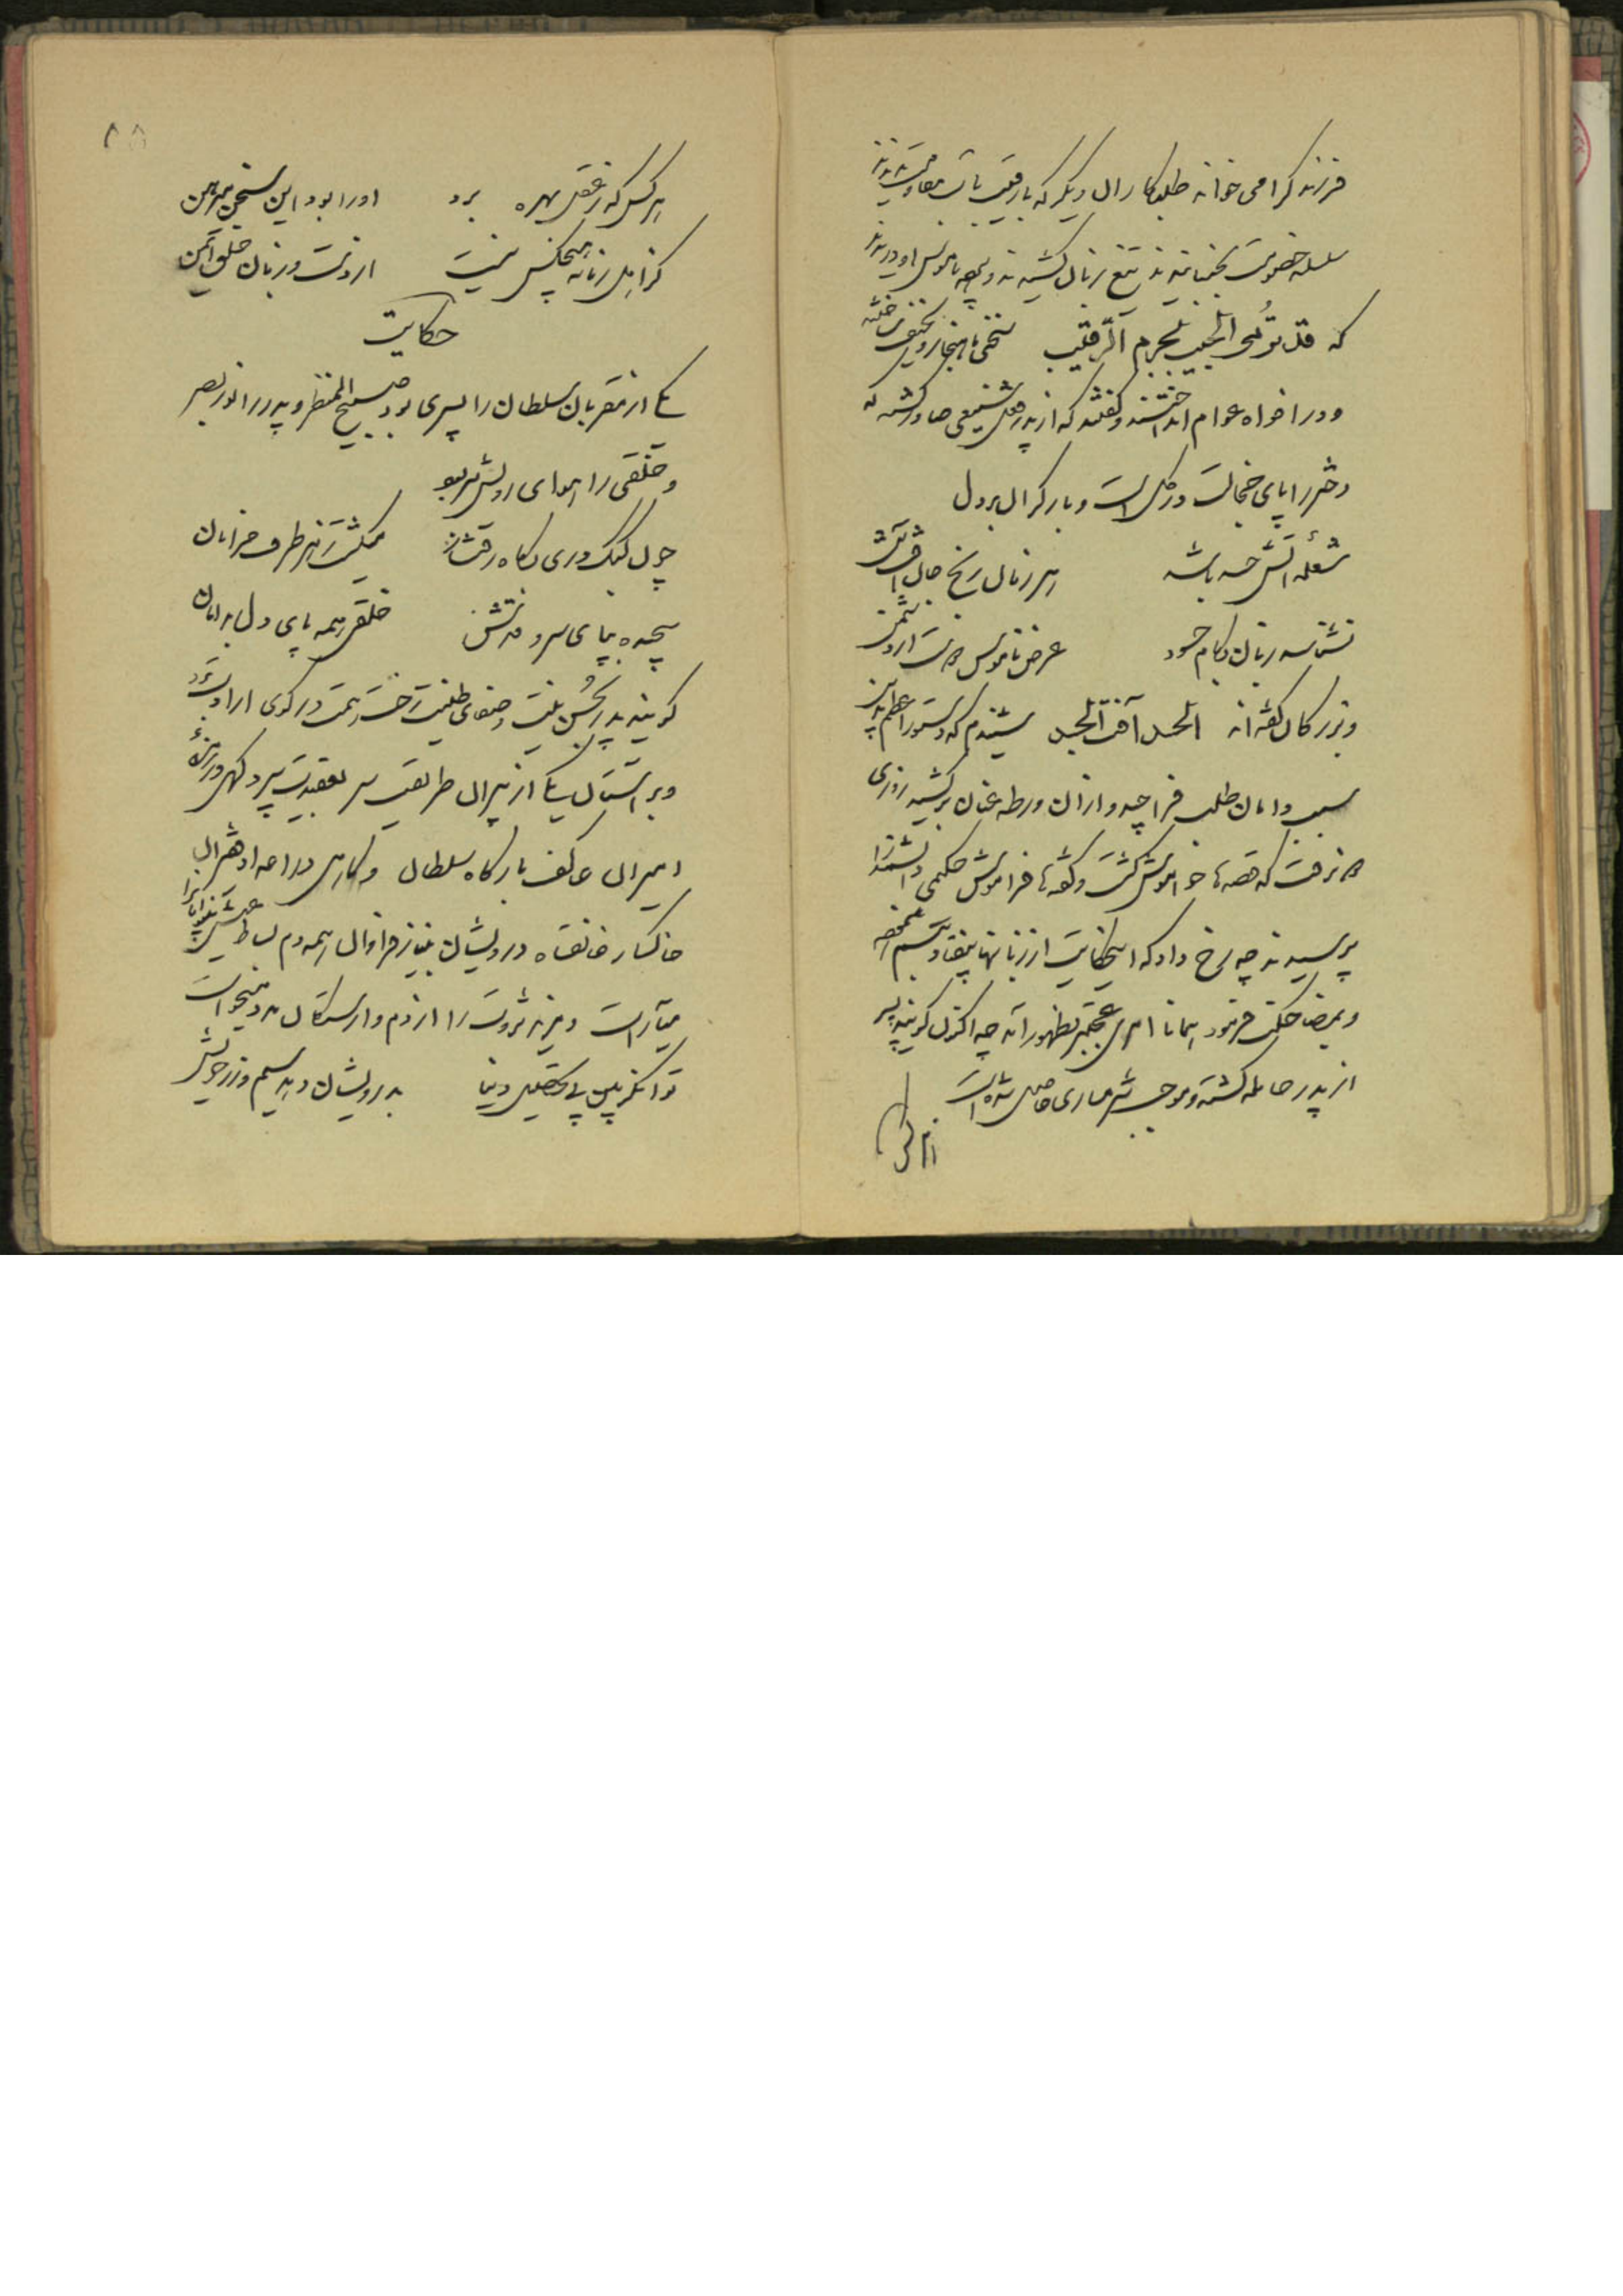 فرزند گرامی خواند طلبکاران دیگر که با رقیب
سلسله خصومت بجنبانیدند تیغ زبان کشیدند و پرده ناموس او دریدند
که قد یؤخذ الحبیب بجرم الرقیب سخنی ناهنجار
و در افواه عوام انداختند و گفتند که از پدر فعل شنیعی صادر گشته که
دختر را پای خجالت در گل است و بار گران بر دل
شعله آتش حسد باشد هر زمان رخ
نشناسد زبان بکام حسود عرض ناموس دوست از دشمن
و بزرگان گفته اند الحسد آفت الجسد شنیدم که دستور اعظم
سبب دامان طلب فراچید و از آن ورطه عنان برکشید روزی
نرفت که قصه ها خاموش گشت و گفته ها فراموش حکیمی
پرسیدند چه رخ داد که این حکایت از زبانها بیفتاد تبسم
و بمضاحکت فرمود همانا امری عجیبتر بظهور آمد چه اکنون گویند پسر
از پدر حامله گشته و موجب شرمساری حاصل شده است
۵۸
هر کس که ز عقل بهره برد او را بود این سخن مبرهن
کز اهل زمانه هیچکس نیست از دست و زبان خلق ایمن
حکایت
یکی از مقربان سلطان را پسری بود صبیح المنظر و پدر را نور بصر
و خلقی را هوای رویش بر سر
چون کبک دری بگاه رفتار میگشت بهر طرف خرامان
پیچیده بپای سرو قدش خلقی همه پای دل بدامان
گویند پدر بحسن نیت و صفای طینت رخت همت در کوی ارادت
و بر آستان یکی از پیران طریقت سر بعقیدت سپرد گهی در زمره
امیران عاکف بارگاه سلطان و گاهی
خاکسار خانقاه درویشان بنیاز فراوان همه دم بساط عیش
میآراست و مزید ثروت را از دم وارستگان مدد میخواست
توانگر بین پی تحصیل دنیا بدرویشان دهد سیم و زر خویش